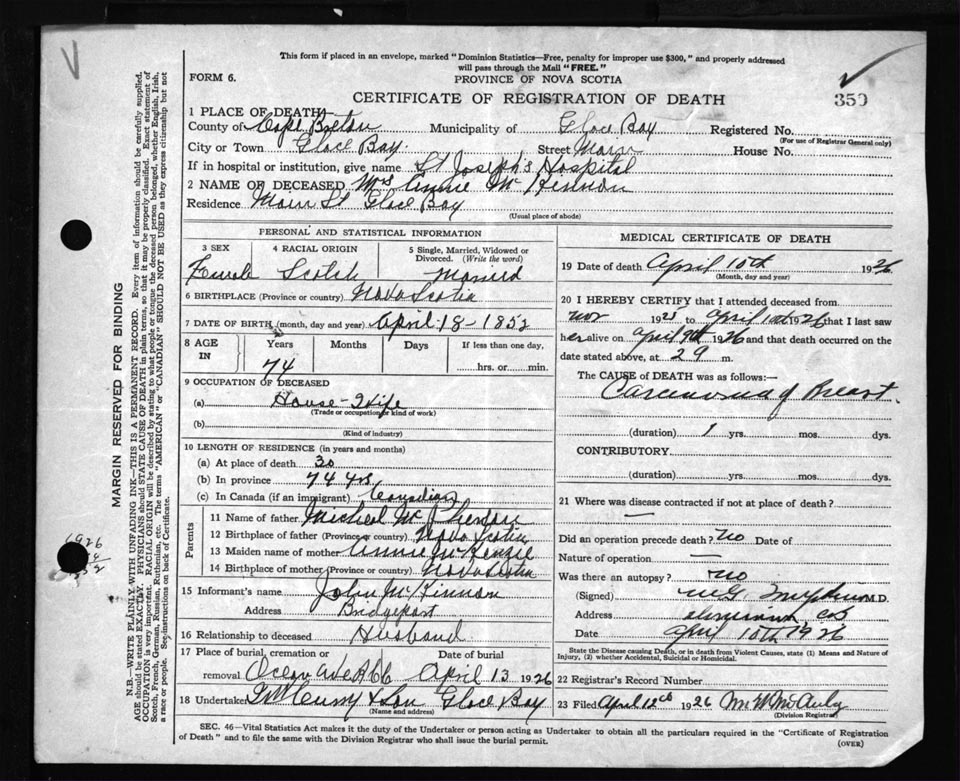 This form if placed in an envelope, marked "Dominion Statistics—Free, penalty for improper use $300," and properly addressed
will pass through the Mail "FREE."
FORM 6.
PROVINCE OF NOVA SCOTIA
CERTIFICATE OF REGISTRATION OF DEATH
350
1 PLACE OF DEATH
County of Cape Breton Municipality of Glace Bay Registered No.
(For use of Registrar General only)
City or Town Glace Bay Street Main House No.
If in hospital or institution, give name St Joseph's Hospital
2 NAME OF DECEASED Mrs Annie McKinnon
Residence Main St Glace Bay
(Usual place of abode)
PERSONAL AND STATISTICAL INFORMATION
3 SEX 4 RACIAL ORIGIN 5 Single, Married, Widowed or
Divorced. (Write the word)
Female Scotch Married
6 BIRTHPLACE (Province or country) Nova Scotia
7 DATE OF BIRTH (month, day and year) April-18-1852
8 AGE IN Years Months Days If less than one day,
74 hrs. or min.
9 OCCUPATION OF DECEASED
(a) House-Wife
(Trade or occupation or kind of work)
(b)
(Kind of industry)
10 LENGTH OF RESIDENCE (in years and months)
(a) At place of death 30
(b) In province 74 yrs
(c) In Canada (if an immigrant) Canadian
Parents
11 Name of father Micheal
12 Birthplace of father (Province or country) Nova Scotia
13 Maiden name of mother Annie McKenzie
14 Birthplace of mother (Province or country) Nova Scotia
15 Informant's name John McKinnon
Address Bridgeport
16 Relationship to deceased Husband
17 Place of burial, cremation or Date of burial
removal Ocean Ave April 13 1926
18 Undertaker & Son Glace Bay
(Name and address)
MEDICAL CERTIFICATE OF DEATH
19 Date of death April 10th 1926
(Month, day and year)
20 I HEREBY CERTIFY that I attended deceased from
Nov 1925 to April 10th 1926 that I last saw
her alive on April 9th 1926 and that death occurred on the
date stated above, at 29 m.
The CAUSE of DEATH was as follows:—
Carcinoma of Breast.
(duration) 1 yrs. mos. dys.
CONTRIBUTORY
(duration) yrs. mos. dys.
21 Where was disease contracted if not at place of death?
—
Did an operation precede death? no Date of
Nature of operation —
Was there an autopsy? no
(Signed) M.D.
Address
Date April 10th 1926
State the Disease causing Death, or in death from Violent Causes, state (1) Means and Nature of
Injury, (2) whether Accidental, Suicidal or Homicidal.
22 Registrar's Record Number
23 Filed April 12th 1926
(Division Registrar)
SEC. 46—Vital Statistics Act makes it the duty of the Undertaker or person acting as Undertaker to obtain all the particulars required in the "Certificate of Registration
of Death" and to file the same with the Division Registrar who shall issue the burial permit.
(OVER)
MARGIN RESERVED FOR BINDING
N.B.—WRITE PLAINLY WITH UNFADING INK—THIS IS A PERMANENT RECORD. Every item of information should be carefully supplied.
AGE should be stated EXACTLY. PHYSICIANS should STATE CAUSE OF DEATH in plain terms, so that it may be properly classified. Exact statement of
OCCUPATION is very important. RACIAL ORIGIN will be described by stating to what people or tongue the deceased person belonged, whether English, Irish,
Scotch, French, German, Russian, Ruthenian, etc. The terms "AMERICAN" or "CANADIAN" SHOULD NOT BE USED as they express citizenship but not
a race or people. See instructions on back of Certificate.
1926